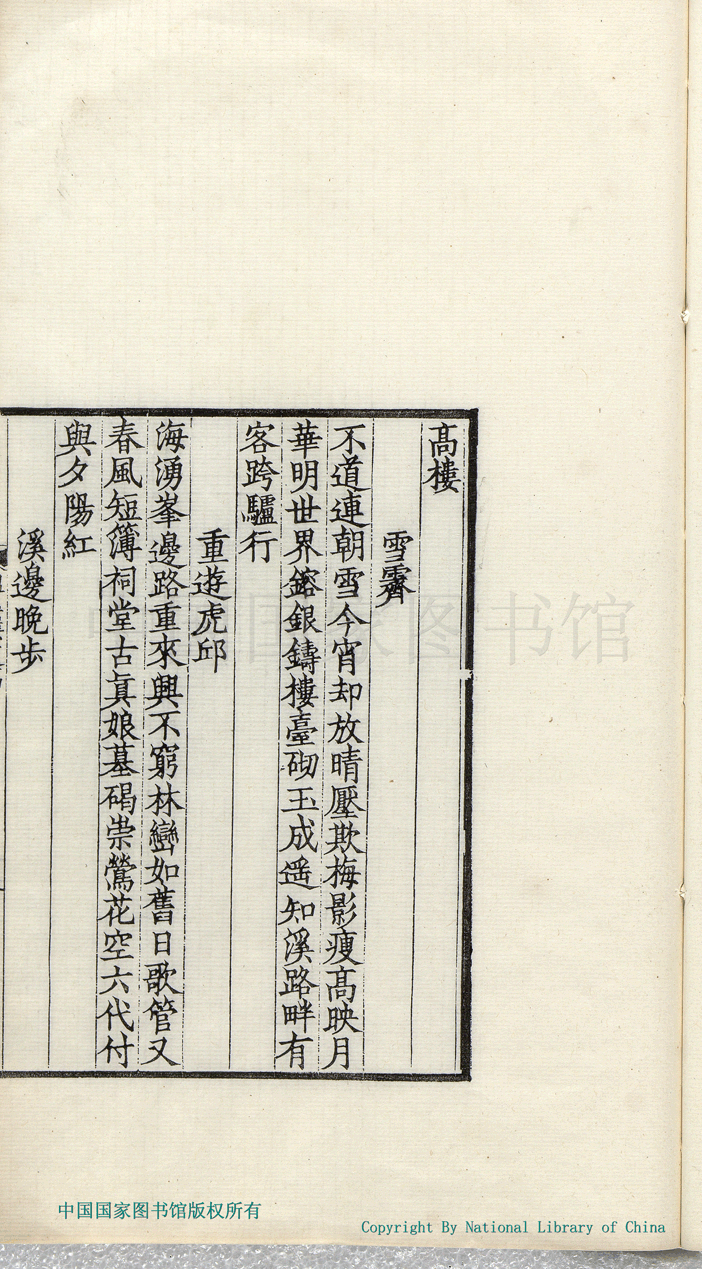 髙樓
雪霽
不道連朝雪今宵却放晴壓欺梅影瘦髙映月
華明世界鎔銀鑄樓臺砌玉成遥知溪路畔有
客跨驢行
重遊虎邱
海湧峯邊路重來興不窮林巒如舊日歌管又
春風短簿祠堂古真娘墓碣崇鶯花空六代付
與夕陽紅
溪邊晚步
中国国家图书馆
中国国家图书馆版权所有
Copyright By National Library of China